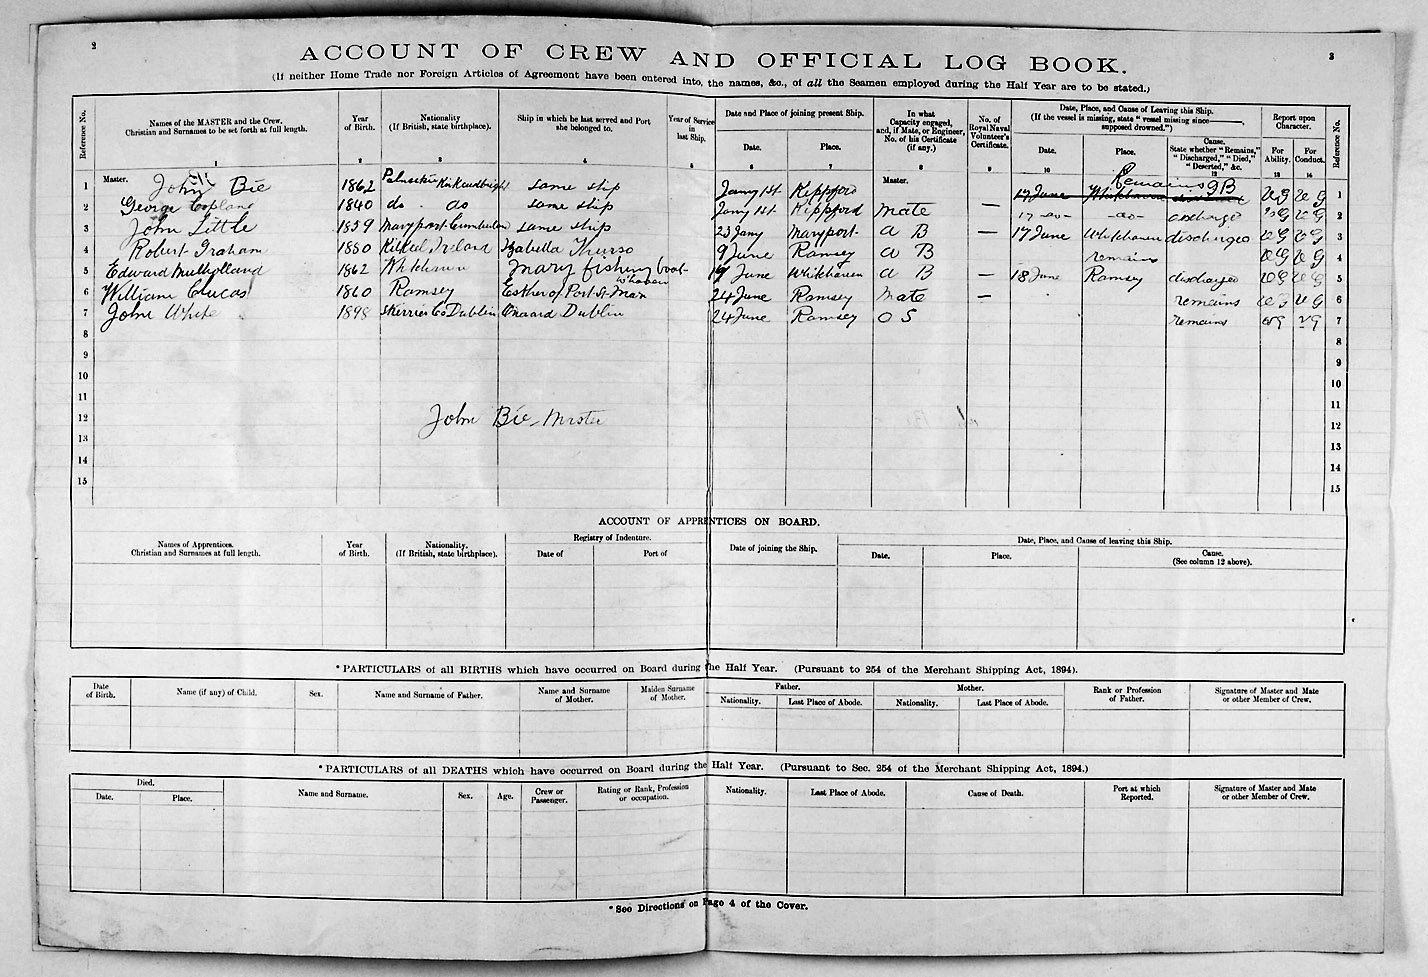 2
3
ACCOUNT OF CREW AND OFFICIAL LOG BOOK.
(If neither Home Trade nor Foreign Articles of Agreement have been entered into, the names, &c., of all the Seamen employed during the Half Year are to be stated.)
Reference No.
Names of the MASTER and the Crew, Christian and Surnames to be set forth at full length.
Year of Birth.
Nationality (If British, state birthplace).
Ship in which he last served and Port she belonged to.
Year of Service in last Ship.
Date and Place of joining present Ship.
Date.
Place.
In what Capacity engaged, and, if Mate, or Engineer, No. of his Certificate (if any).
No. of Royal Naval Volunteer's Certificate.
Date, Place, and Cause of Leaving this Ship.
(If the vessel is missing, state "vessel missing since———, supposed drowned.")
Date.
Place.
Cause.
State whether "Remains," "Discharged," "Died," "Deserted," &c.
Report upon Character.
For Ability.
For Conduct.
Reference No.
1 2 3 4 5 6 7 8 9 10 11 12 13 14
1 Master. John Bie 1862 Kirkcudbright same ship Jany 1st. Kippford Master. 17 June Whitehaven Remains JB V G V G 1
2 George Copland 1840 do - do same ship Jany 1st. Kippford Mate — 17 -do- -do- discharge V G V G 2
3 John Little 1859 Maryport Cumberland same ship 23 Jany Maryport A B — 17 June Whitehaven discharged V G V G 3
4 Robert Graham 1850 Kilkeel Ireland Isabella Thurso 9 June Ramsey A B remains V G V G 4
5 Edward Mulholland 1862 Whitehaven Mary fishing boat W'haven 19 June Whitehaven A B — 18 June Ramsey discharged V G V G 5
6 William Clucas 1860 Ramsey Esther of Port St. Mary 24 June Ramsey Mate — remains V G V G 6
7 John White 1898 Skerries Co Dublin Dublin 24 June Ramsey O S remains V G V G 7
8 8
9 9
10 10
11 11
12 John Bie Master 12
13 13
14 14
15 15
ACCOUNT OF APPRENTICES ON BOARD.
Names of Apprentices. Christian and Surnames at full length.
Year of Birth.
Nationality. (If British, state birthplace).
Registry of Indenture.
Date of
Port of
Date of joining the Ship.
Date, Place, and Cause of leaving this Ship.
Date.
Place.
Cause. (See column 12 above).
*PARTICULARS of all BIRTHS which have occurred on Board during the Half Year. (Pursuant to 254 of the Merchant Shipping Act, 1894).
Date of Birth.
Name (if any) of Child.
Sex.
Name and Surname of Father.
Name and Surname of Mother.
Maiden Surname of Mother.
Father.
Nationality.
Last Place of Abode.
Mother.
Nationality.
Last Place of Abode.
Rank or Profession of Father.
Signature of Master and Mate or other Member of Crew.
*PARTICULARS of all DEATHS which have occurred on Board during the Half Year. (Pursuant to Sec. 254 of the Merchant Shipping Act, 1894.)
Died.
Date.
Place.
Name and Surname.
Sex.
Age.
Crew or Passenger.
Rating or Rank, Profession or occupation.
Nationality.
Last Place of Abode.
Cause of Death.
Port at which Reported.
Signature of Master and Mate or other Member of Crew.
*See Directions on Page 4 of the Cover.